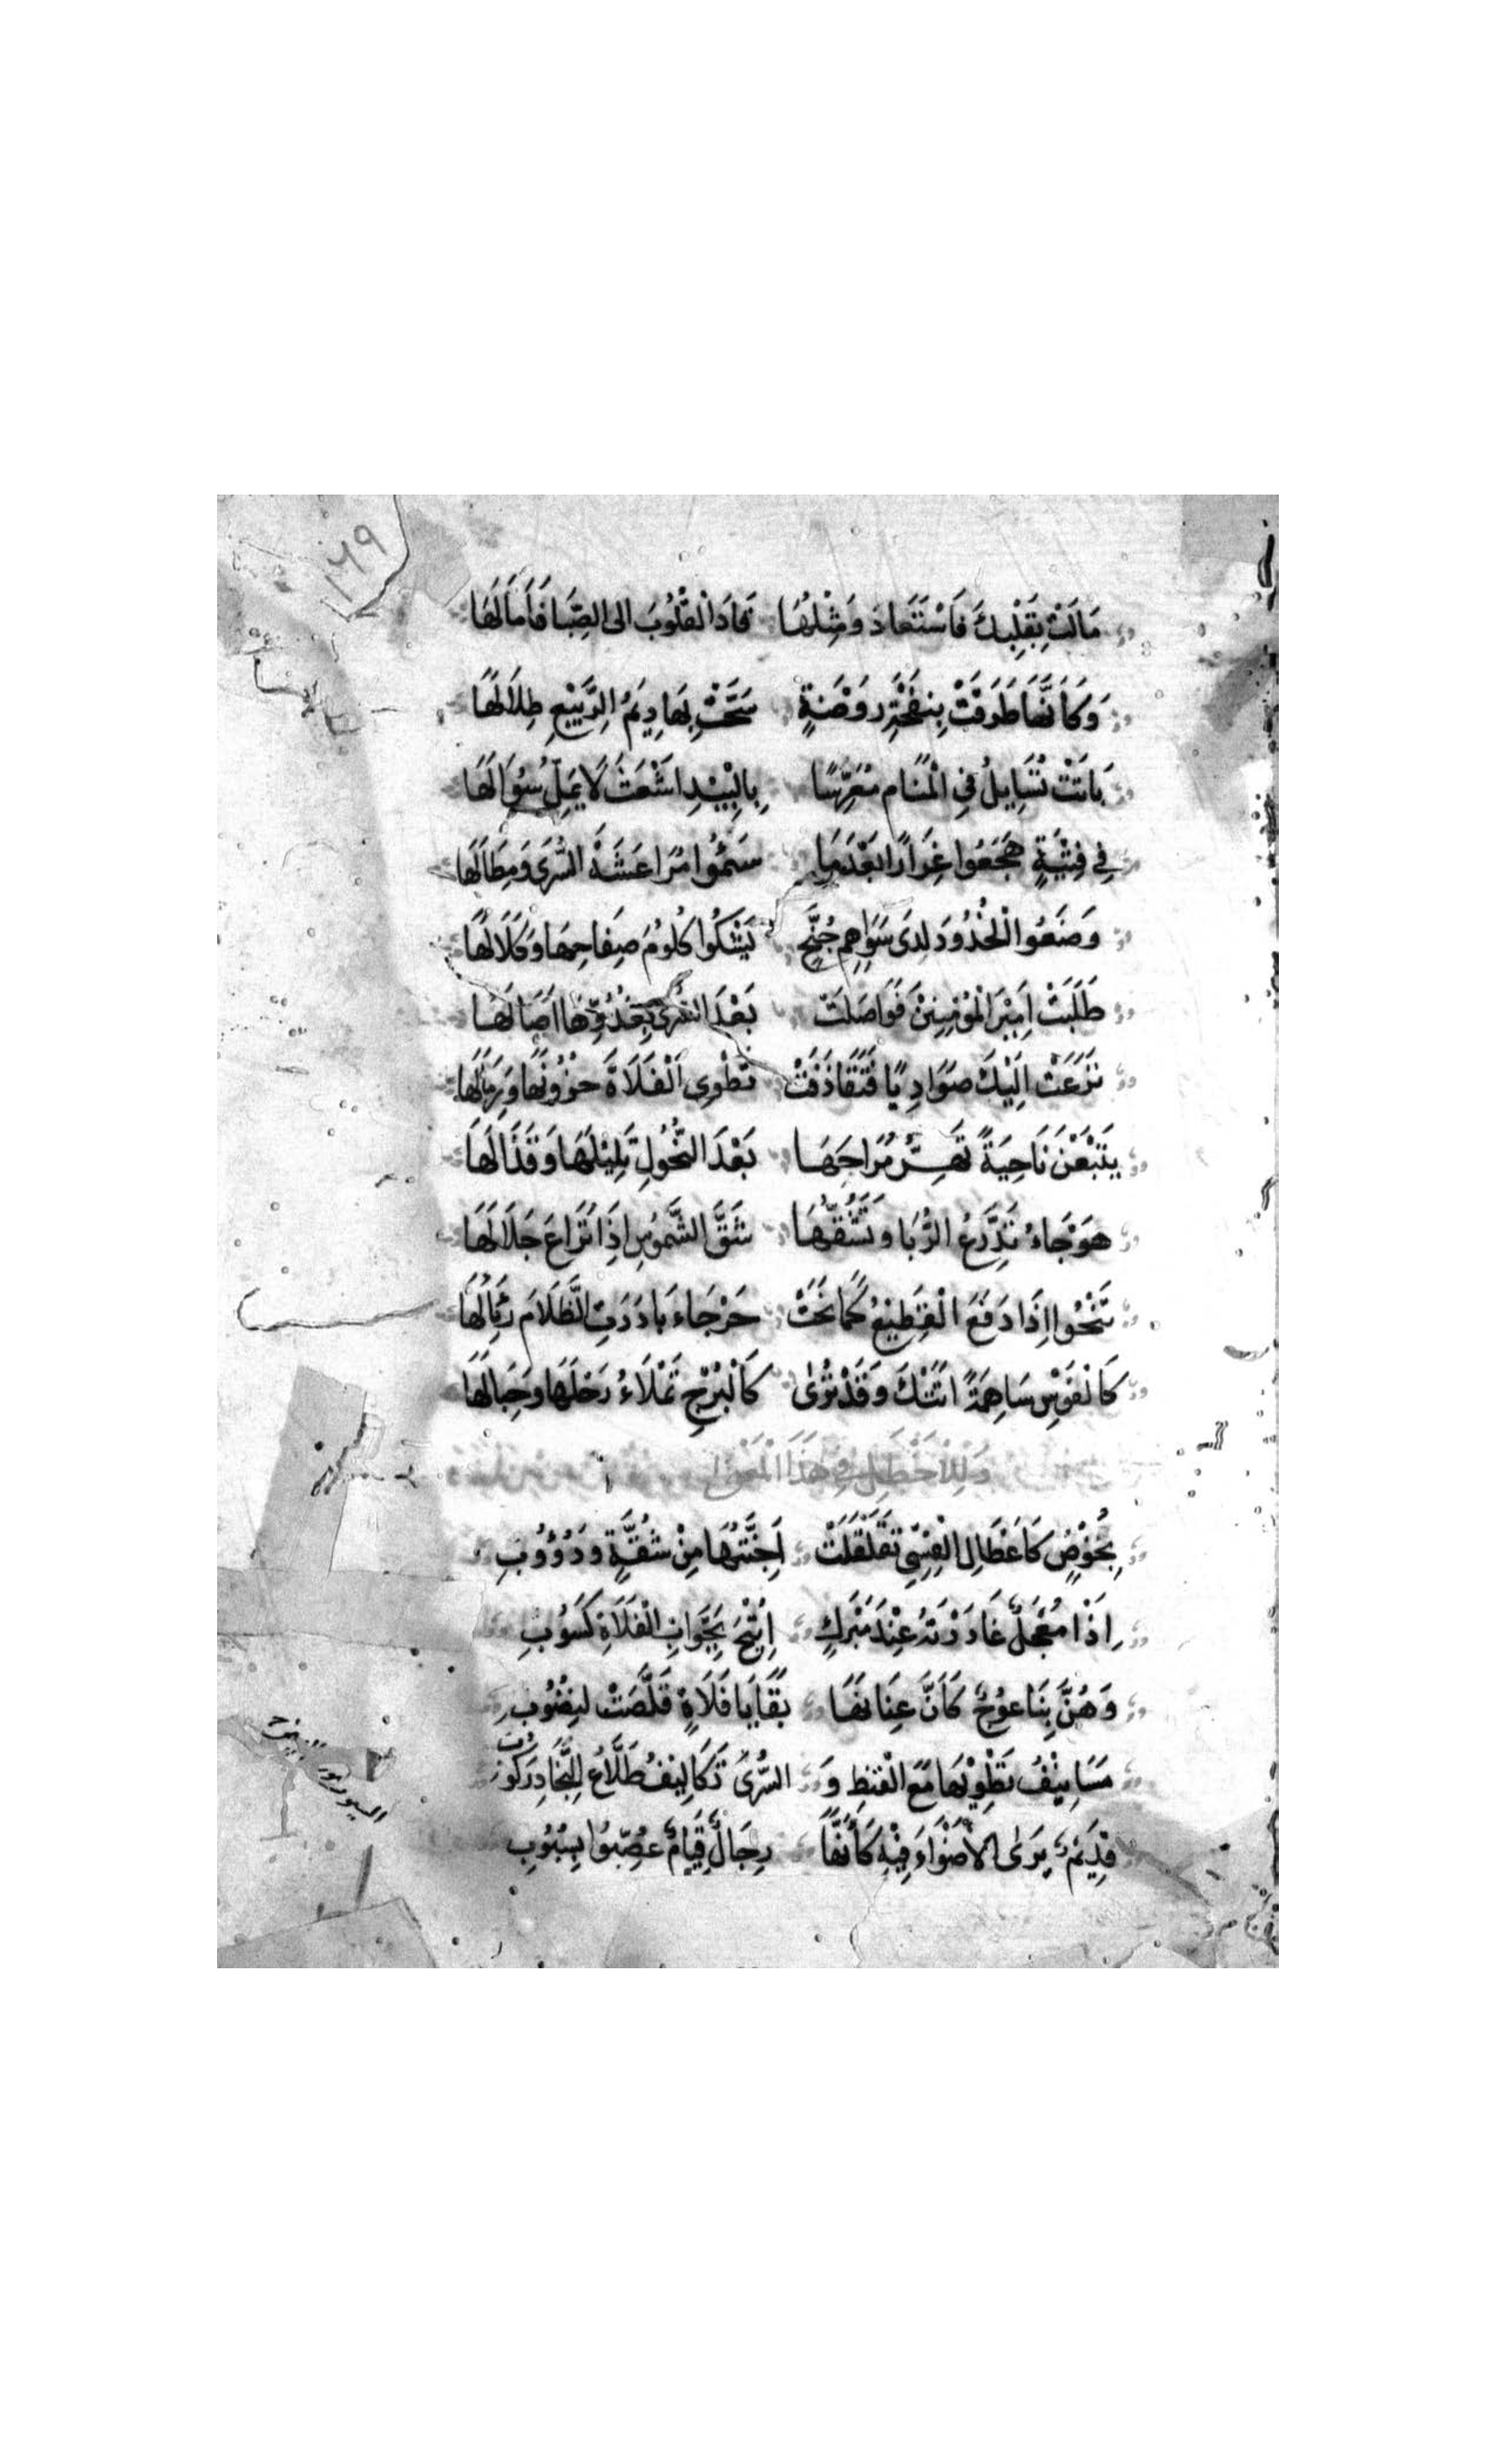 ١٦٩
مَالَتْ بِقَلْبِكَ فَاسْتَقَادَ وَمِثْلُهَا قَادَ الْقُلُوبَ الى الصِّبَا فَأَمَالَهَا
وَكَأَنَّهَا طَرَقَتْ بِنَفْحَةِ رَوْضَةٍ سَحَّتْ بِهَا دِيَمُ الرَّبِيْعِ طِلَالَهَا
بَاتَتْ تُسَايِلُ فِي الْمَنَامِ مُعَرِّسًا بِالْبِيْدِ اشْعَثَ لَا يَمَلُّ سُؤَالَهَا
فِي فِتْيَةٍ هَجَعُوا غِرَارًا بَعْدَمَا سَئِمُوا مُرَاعَشَةَ السُّرَى وَمِطَالَهَا
وَضَعُوا الْخُدُودَ لَدَى سَوَاهِمِ جُنَّحٍ تَشْكُوا كُلُومَ صِفَاحِهَا وَكَلَالَهَا
طَلَبَتْ اَمِيْرَ الْمُؤْمِنِيْنَ فَوَاصَلَتْ بَعْدَ السُّرَى بِغُدُوِّهَا اصَالَهَا
نَزَعَتْ اِلَيْكَ صَوَادِيًا فَتَقَاذَفَتْ تَطْوِي الْفَلَاةَ حُزُونَهَا وَرِمَالَهَا
يَتْبَعْنَ نَاجِيَةً تَهِزُّ مُرَاحَهَا بَعْدَ النُّحُولِ تَلِيْلَهَا وَقَذَالَهَا
هَوْجَاءُ تَدَّرِعُ الرُّبَا وَتَشُقُّهَا شَقَّ الشَّمُوسِ اِذَا تُرَاعَ جَلَالَهَا
تَنْجُوا اِذَا دَفَعَ الْقَطِيْعُ كَمَا نَجَتْ خَرْجَاءُ بَادَرَتِ الظَّلَامَ رِئَالَهَا
كَالْقَوْسِ سَاهِمَةً اتَتْكَ وَقَدْ تُرَى كَالْبُرْجِ تَمْلَاءُ رَحْلَهَا وَحِبَالَهَا
وَلِلْاَخْطَلِ فِي هَذَا الْمَعْنَى
بِخُوْصٍ كَاَعْطَالِ الْقِسِيِّ تَقَلْقَلَتْ اَجِنَّتُهَا مِنْ شُقَّةٍ وَدُؤُوبِ
اِذَا مُعْجَلٌ غَادَرْتَهُ عِنْدَ مَبْرَكٍ اُتِيْحَ بِجَوَّابِ الْفَلَاةِ كَسُوْبِ
وَهُنَّ بِنَا عُوْجٌ كَاَنَّ عُيُونَهَا بَقَايَا فَلَاةٍ قَلَّصَتْ لِنُضُوْبِ
مَسَانِيْفُ يَطْوِيْهَا مَعَ الْقَيْظِ وَالسُّرَى تَكَالِيْفُ طَلَّاعِ النِّجَادِ رَكُوبِ
قَدِيْمٌ يَرَى الاَصْوَاءَ فِيْهِ كَاَنَّهَا رِجَالٌ قِيَامٌ عُصِّبُوا بِسُبُوْبِ